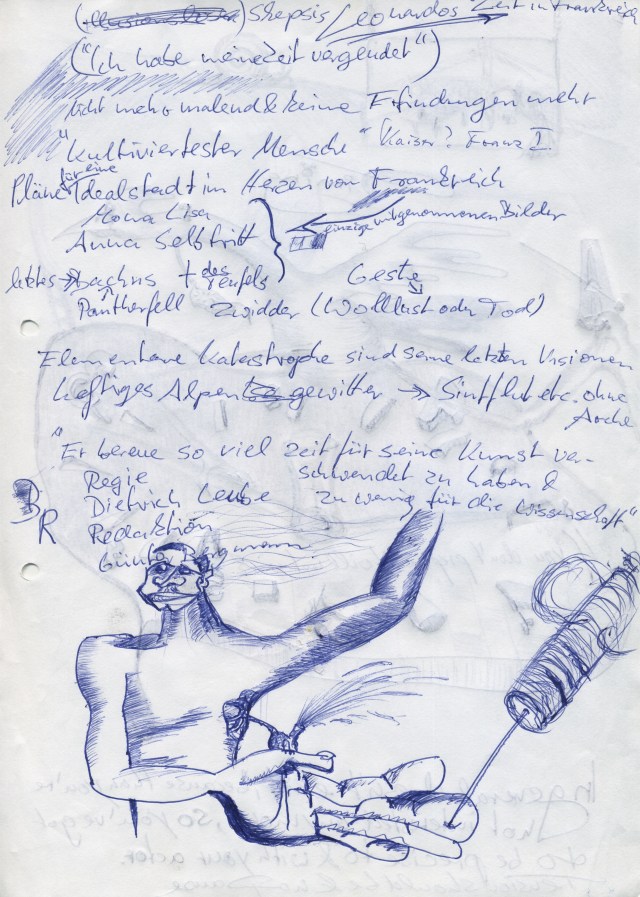 ( ) Skepsis Leonardos Zeit in Frankreich
("Ich habe meine Zeit vergendet")
nicht mehr malend & keine Erfindungen mehr
"Kultiviertester Mensch" Kaiser? Franz I
Pläne für eine Idealstadt im Herzen von Frankreich
Mona Lisa
einzige mitgenommenen Bilder
Anna Selbtritt
letztes → Bachus + des Teufels Geste
Pantherfell Zwidder (Wolllust oder Tod)
Elementare Katastrophe sind seine letzten Visionen
heftiges Alpen gewitter → Sintflut etc. ohne
Arche
"Er bereue so viel Zeit für seine Kunst ver-
schwendet zu haben &
zu wenig für die Wissenschaft"
BR
Regie
Dietrich Leube
Redaktion